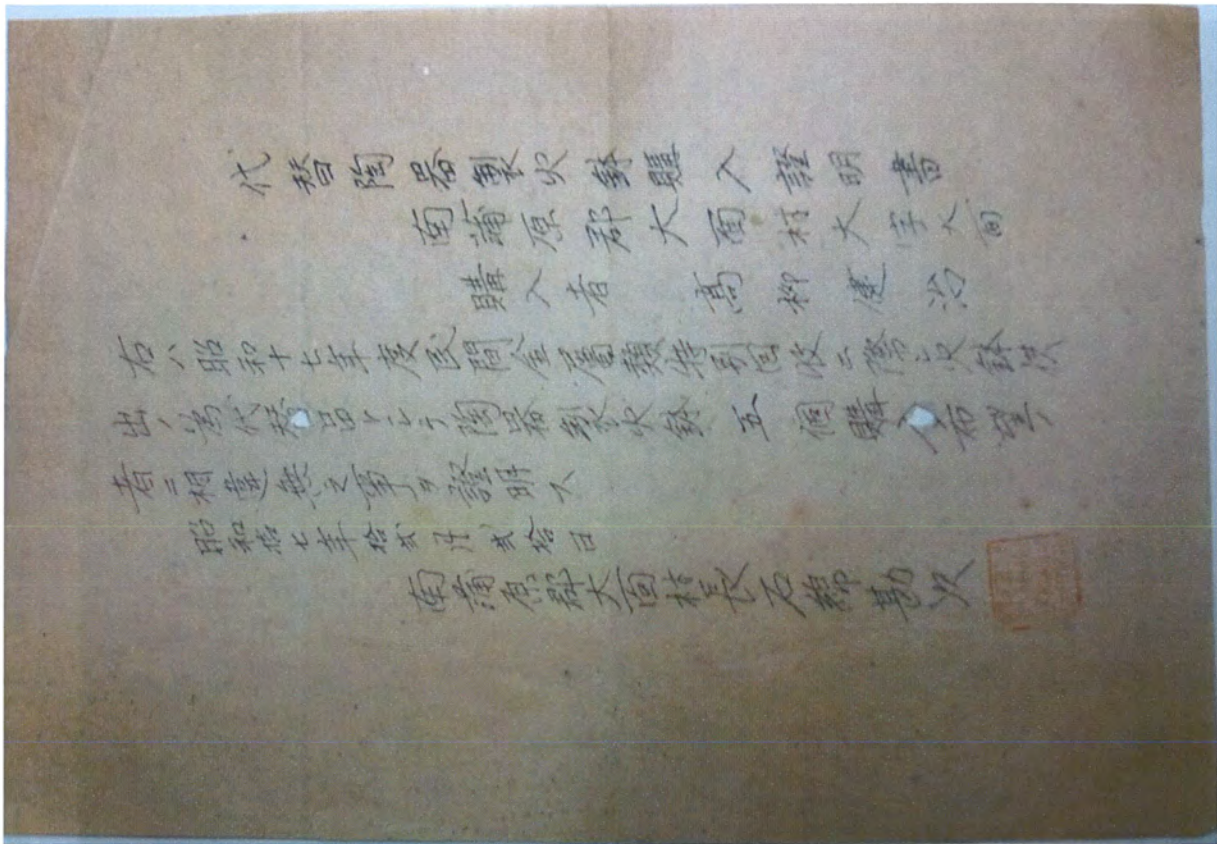 代替陶器製火鉢購入證明書
南蒲原郡大面村大字大面
購入者 高柳運治
右ハ昭和十七年度民間金属類特別回收ニ際シ火鉢供
出ノ為代替品トシテ陶器製火鉢五個購入希望ノ
者ニ相違無之事ヲ證明ス
昭和拾七年拾弐月弐拾日
南蒲原郡大面村長石鄉勘次